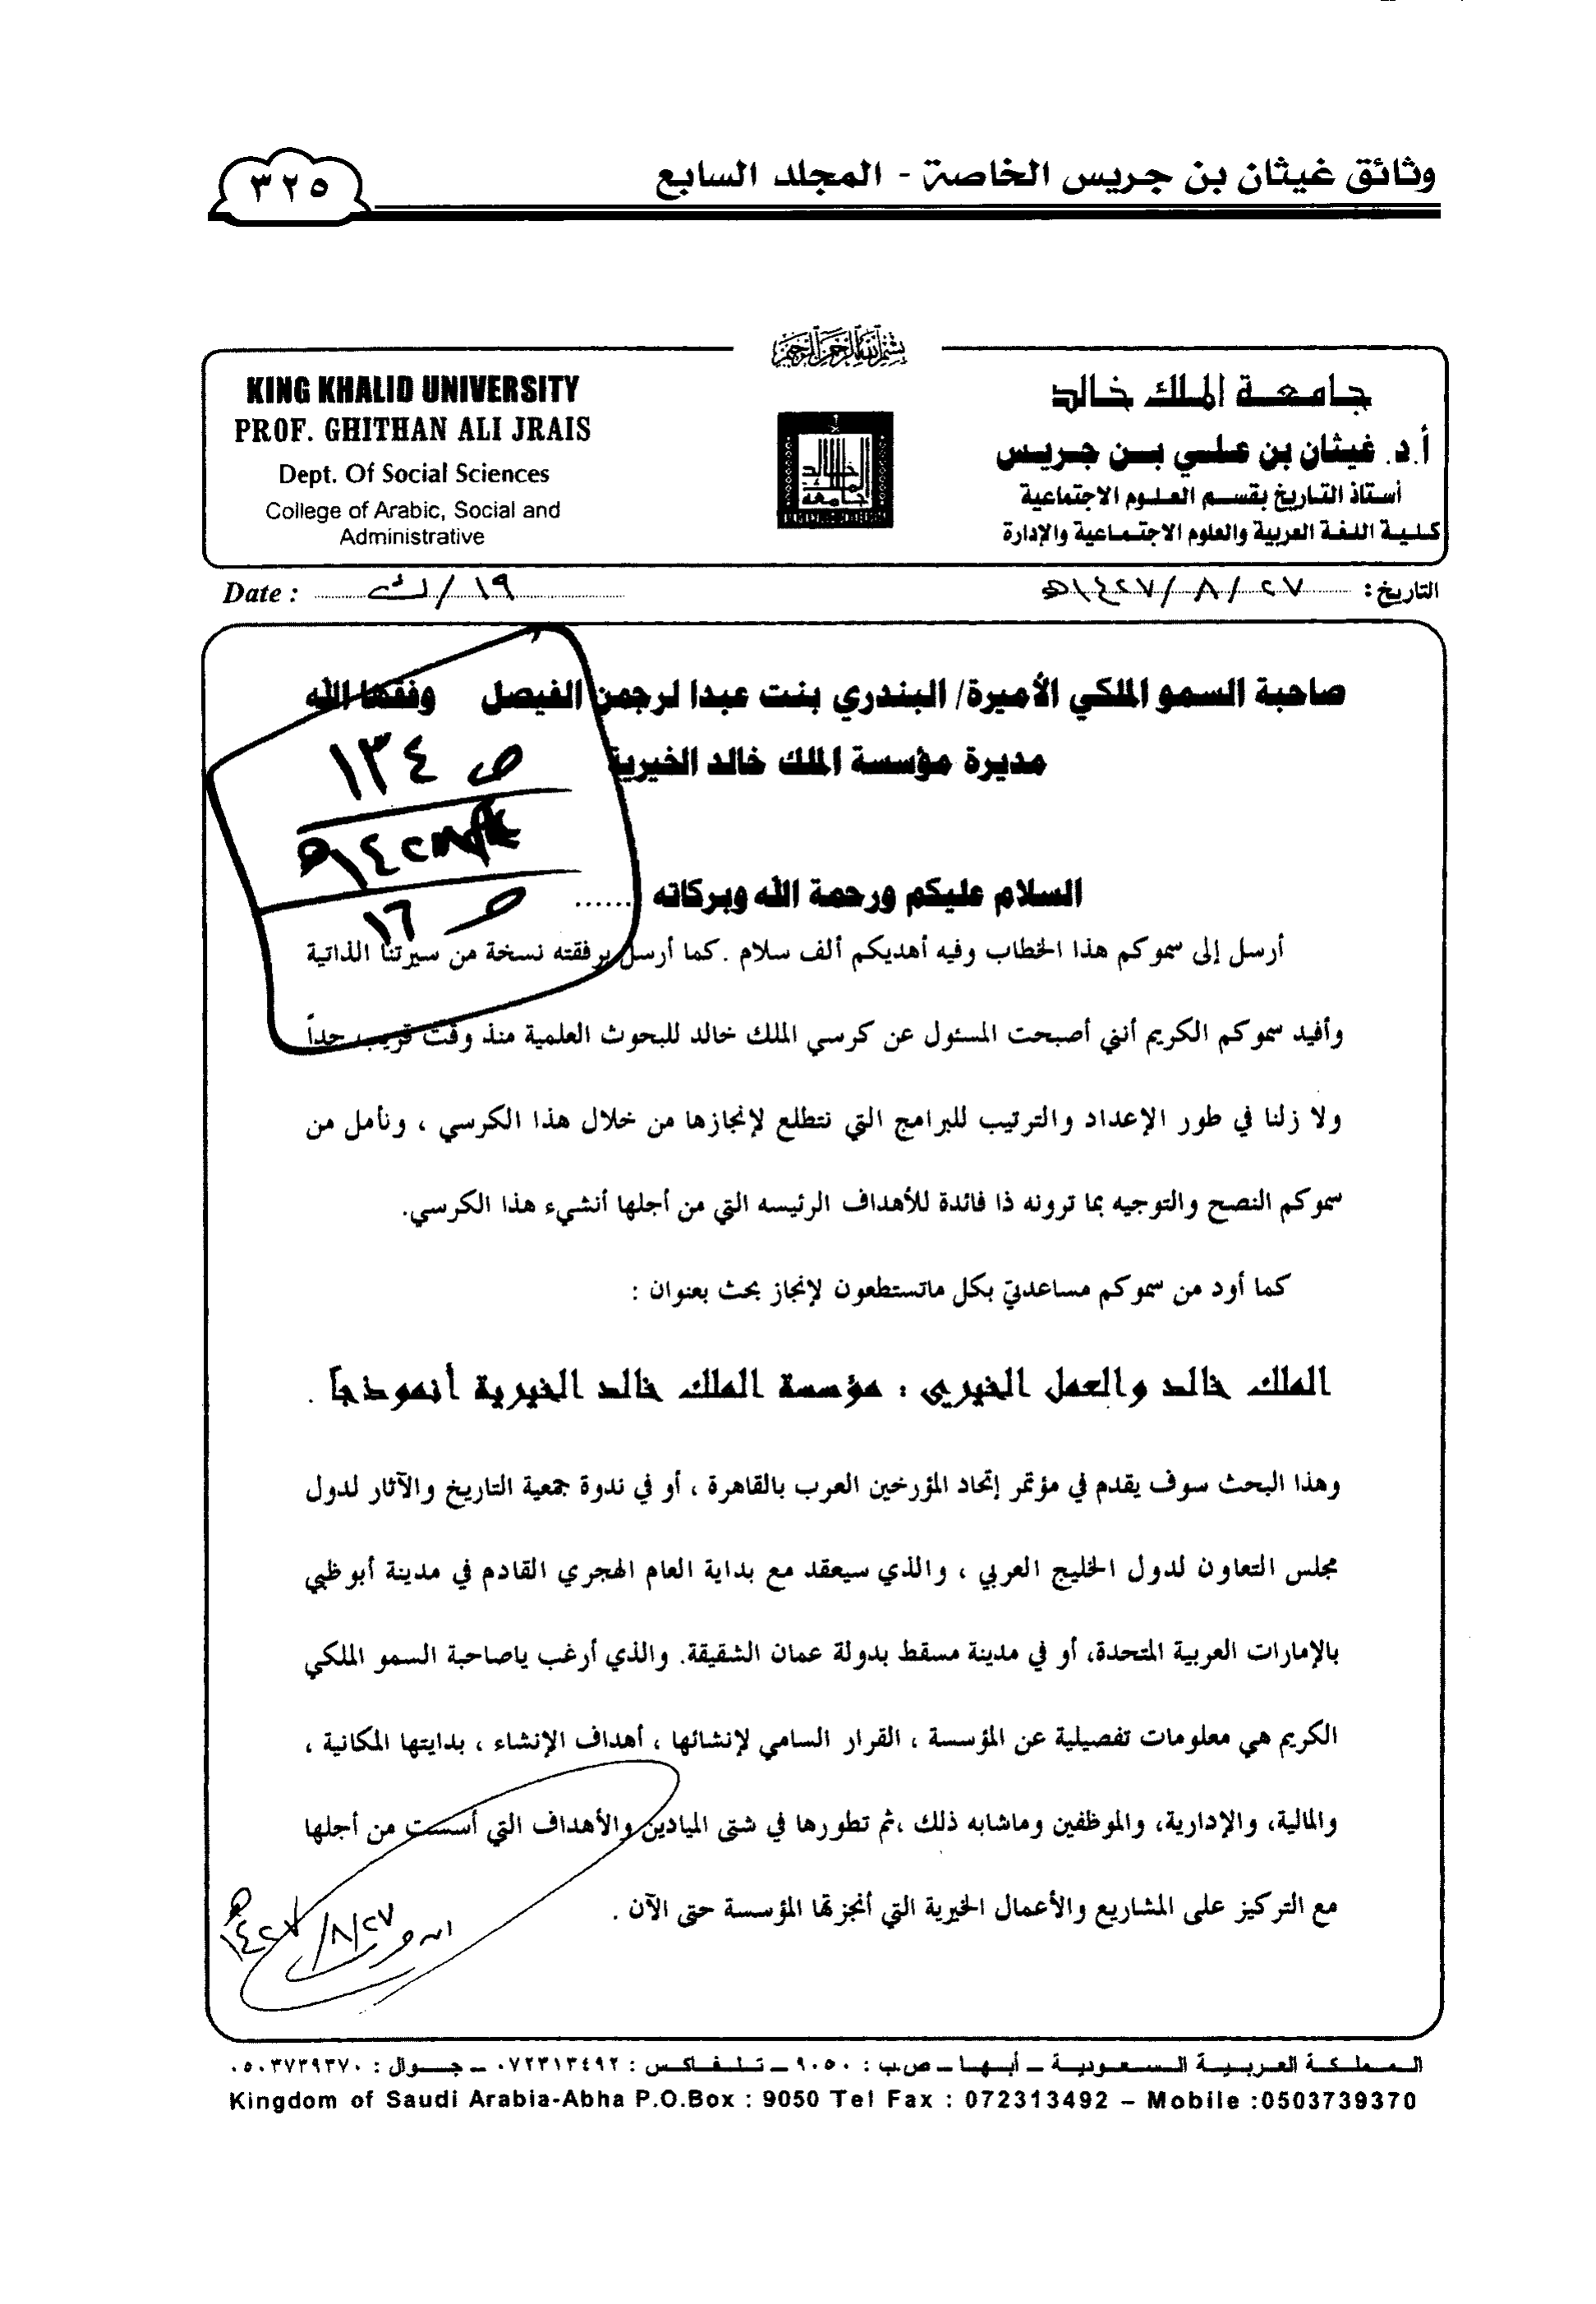 وثائق غيثان بن جريس الخاصة - المجلد السابع
٣٢٥
بسم الله الرحمن الرحيم
جامعة الملك خالد
أ.د. غيثان بن علي بن جريس
أستاذ التاريخ بقسم العلوم الاجتماعية
كلية اللغة العربية والعلوم الاجتماعية والإدارة
KING KHALID UNIVERSITY
PROF. GHITHAN ALI JRAIS
Dept. Of Social Sciences
College of Arabic, Social and
Administrative
التاريخ : ٢٧ / ٨ / ١٤٢٧هـ
Date : ١٩ / ك
صاحبة السمو الملكي الأميرة/ البندري بنت عبدا لرحمن الفيصل وفقها الله
مديرة مؤسسة الملك خالد الخيرية
ص ١٣٤
ص ١٦
السلام عليكم ورحمة الله وبركاته ......
أرسل إلى سموكم هذا الخطاب وفيه أهديكم ألف سلام .كما أرسل برفقته نسخة من سيرتنا الذاتية
وأفيد سموكم الكريم أنني أصبحت المسئول عن كرسي الملك خالد للبحوث العلمية منذ وقت قريب جداً
ولا زلنا في طور الإعداد والترتيب للبرامج التي نتطلع لإنجازها من خلال هذا الكرسي ، ونأمل من
سموكم النصح والتوجيه بما ترونه ذا فائدة للأهداف الرئيسه التي من أجلها أنشيء هذا الكرسي.
كما أود من سموكم مساعدتي بكل ماتستطعون لإنجاز بحث بعنوان :
الملك خالد والعمل الخيري : مؤسسة الملك خالد الخيرية أنموذجاً .
وهذا البحث سوف يقدم في مؤتمر إتحاد المؤرخين العرب بالقاهرة ، أو في ندوة جمعية التاريخ والآثار لدول
مجلس التعاون لدول الخليج العربي ، والذي سيعقد مع بداية العام الهجري القادم في مدينة أبو ظبي
بالإمارات العربية المتحدة، أو في مدينة مسقط بدولة عمان الشقيقة. والذي أرغب ياصاحبة السمو الملكي
الكريم هي معلومات تفصيلية عن المؤسسة ، القرار السامي لإنشائها ، أهداف الإنشاء ، بدايتها المكانية ،
والمالية، والإدارية، والموظفين وماشابه ذلك ،ثم تطورها في شتى الميادين والأهداف التي أسست من أجلها
مع التركيز على المشاريع والأعمال الخيرية التي أنجزتها المؤسسة حتى الآن .
٢٧/٨/١٤٢٧هـ
المملكة العربية السعودية – أبها – ص.ب : ٩٠٥٠ – تلفاكس : ٠٧٢٣١٣٤٩٢ – جوال : ٠٥٠٣٧٣٩٣٧٠
Kingdom of Saudi Arabia-Abha P.O.Box : 9050 Tel Fax : 072313492 – Mobile :0503739370